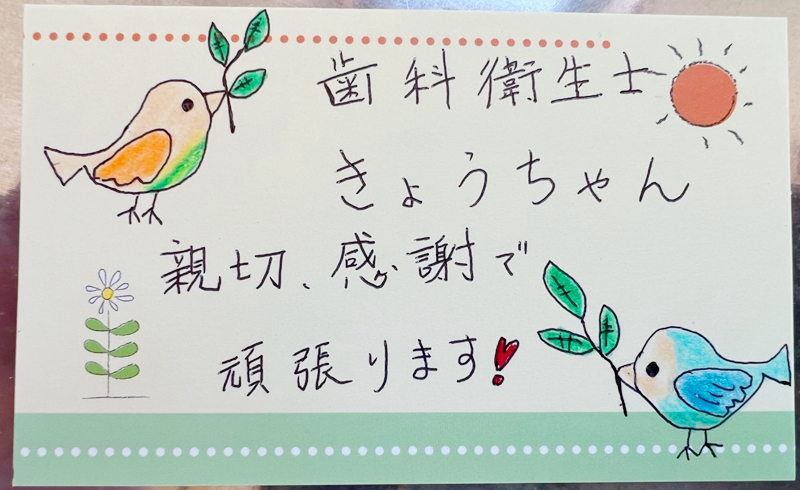 歯科衛生士
きょうちゃん
親切、感謝で
頑張ります!